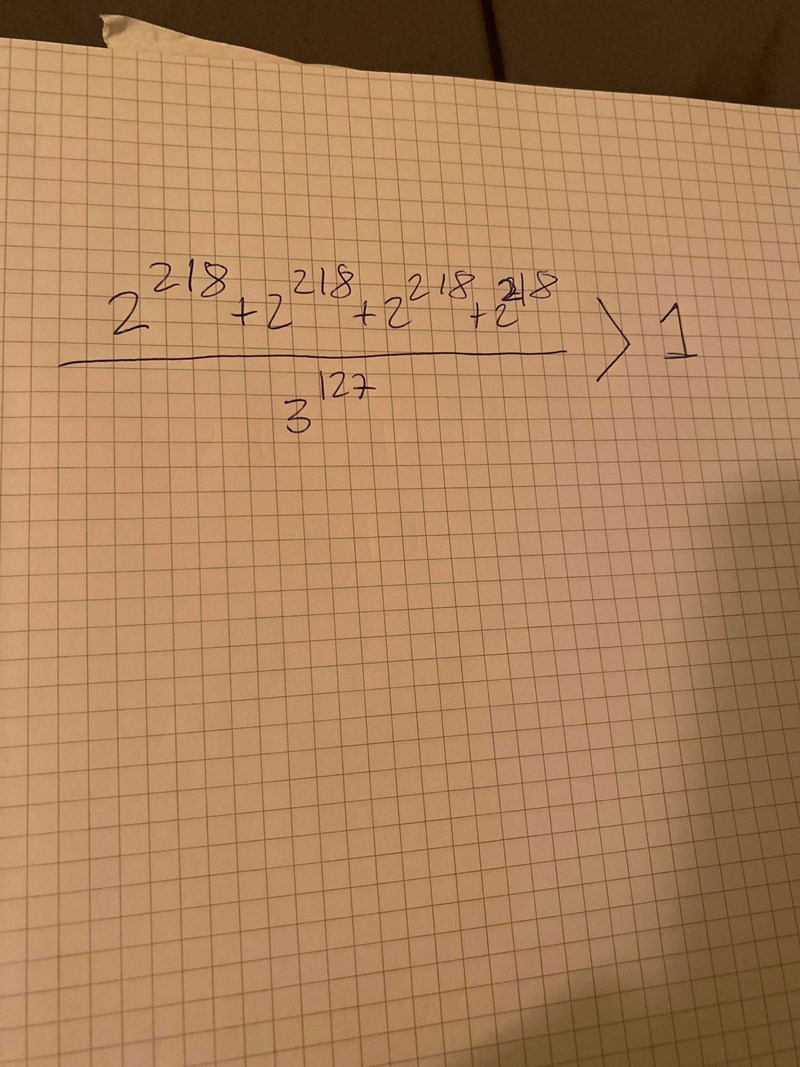 2²¹⁸+2²¹⁸+2²¹⁸+2²¹⁸
3¹²⁷
> 1